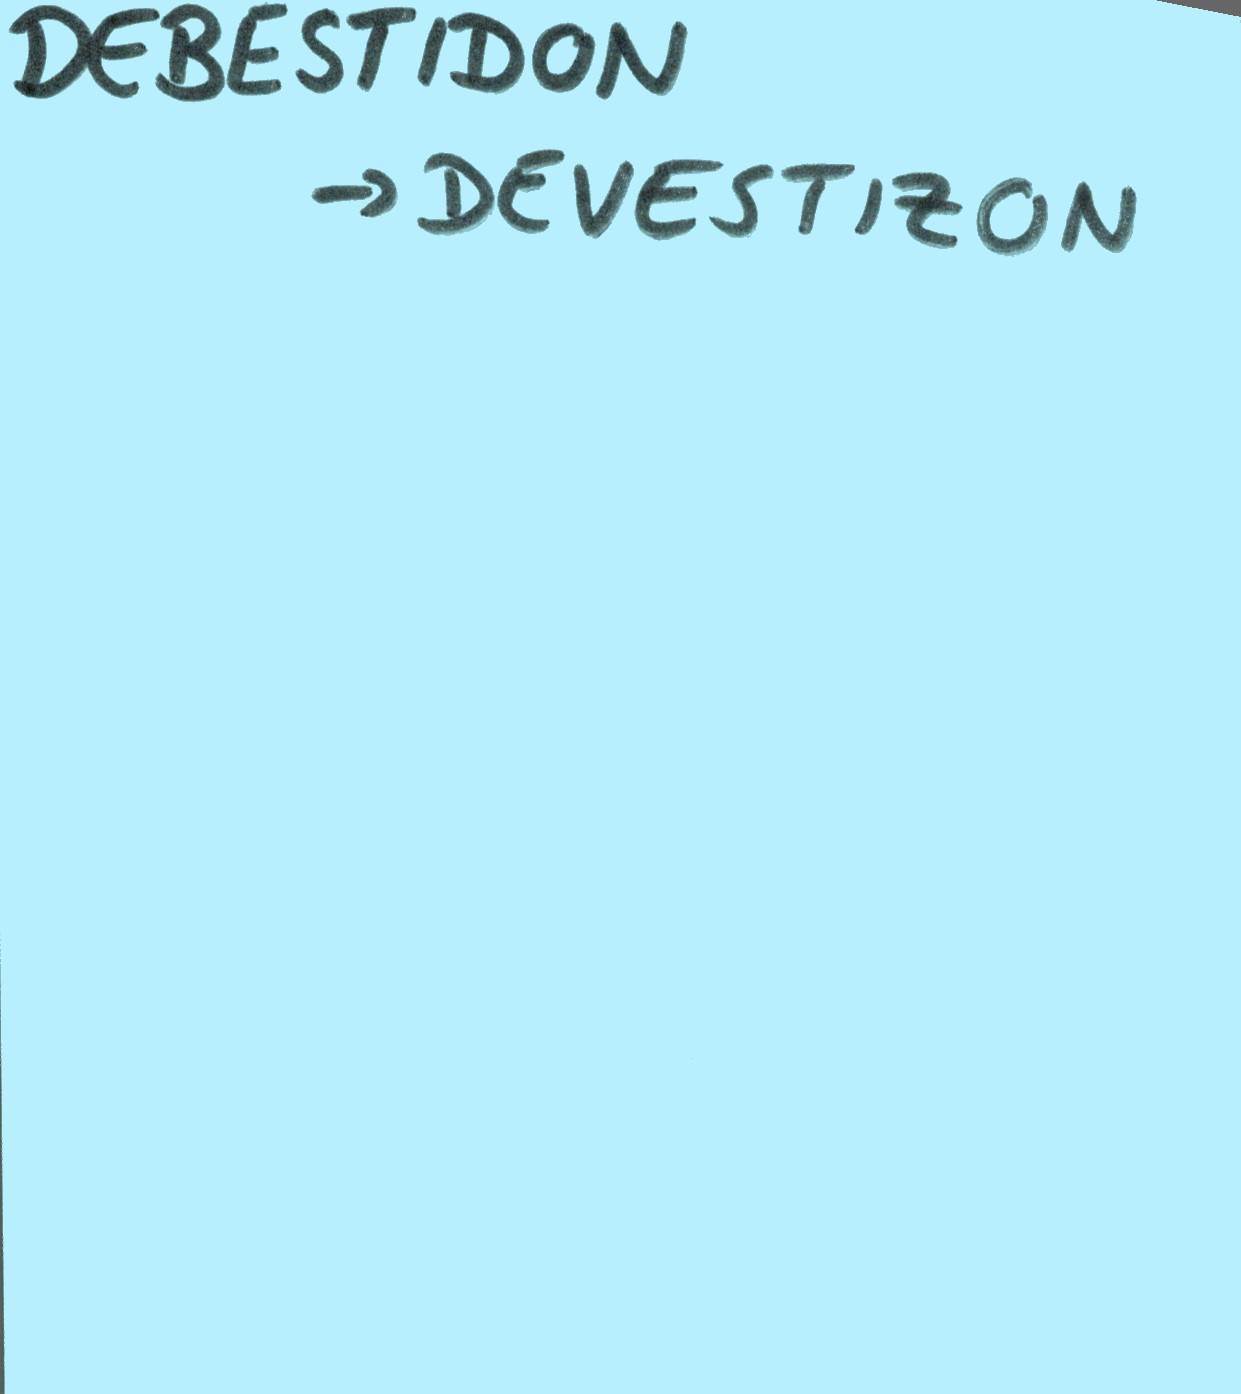 DEBESTIDON
→ DEVESTIZON